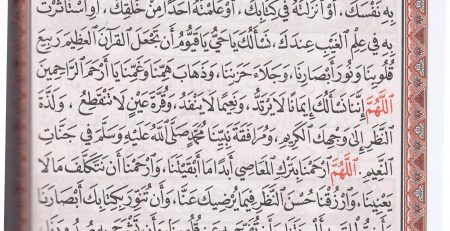 بِهِ نَفْسَكَ، أَوْ أَنْزَلْتَهُ فِي كِتَابِكَ، أَوْ عَلَّمْتَهُ أَحَدًا مِنْ خَلْقِكَ، أَوِ اسْتَأْثَرْتَ
بِهِ فِي عِلْمِ الْغَيْبِ عِنْدَكَ، نَسْأَلُكَ يَا حَيُّ يَا قَيُّومُ أَنْ تَجْعَلَ الْقُرْآنَ الْعَظِيمَ رَبِيعَ
قُلُوبِنَا وَنُورَ أَبْصَارِنَا، وَجَلَاءَ حَزَنِنَا، وَذَهَابَ هَمِّنَا وَغَمِّنَا يَا أَرْحَمَ الرَّاحِمِينَ
اللَّهُمَّ إِنَّا نَسْأَلُكَ إِيمَانًا لَا يَرْتَدُّ، وَنَعِيمًا لَا يَنْفَدُ، وَقُرَّةَ عَيْنٍ لَا تَنْقَطِعُ، وَلَذَّةَ
النَّظَرِ إِلَى وَجْهِكَ الْكَرِيمِ، وَمُرَافَقَةَ نَبِيِّنَا مُحَمَّدٍ صَلَّى اللَّهُ عَلَيْهِ وَسَلَّمَ فِي جَنَّاتِ
النَّعِيمِ. اللَّهُمَّ ارْحَمْنَا بِتَرْكِ الْمَعَاصِي أَبَدًا مَا أَبْقَيْتَنَا، وَارْحَمْنَا أَنْ نَتَكَلَّفَ مَا لَا
يَعْنِينَا، وَارْزُقْنَا حُسْنَ النَّظَرِ فِيمَا يُرْضِيكَ عَنَّا، وَأَنْ تُنَوِّرَ بِكِتَابِكَ أَبْصَارَنَا